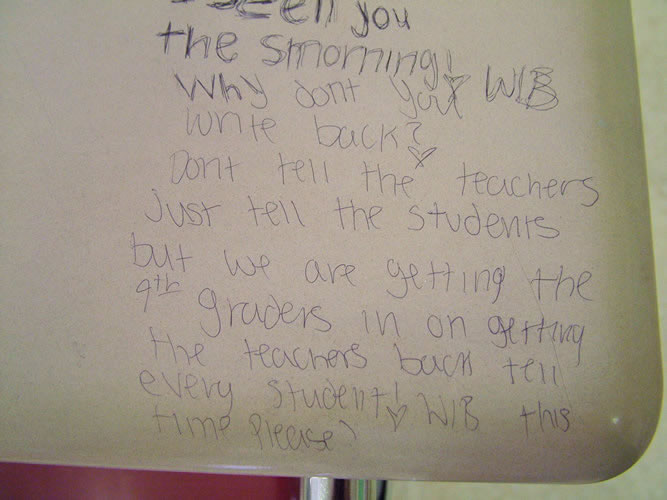 I seen you
the smorning!
Why dont you W/B
write back?
Dont tell the teachers
Just tell the students
but we are getting the
9th graders in on getting
the teachers back tell
every student! W/B this
time please?